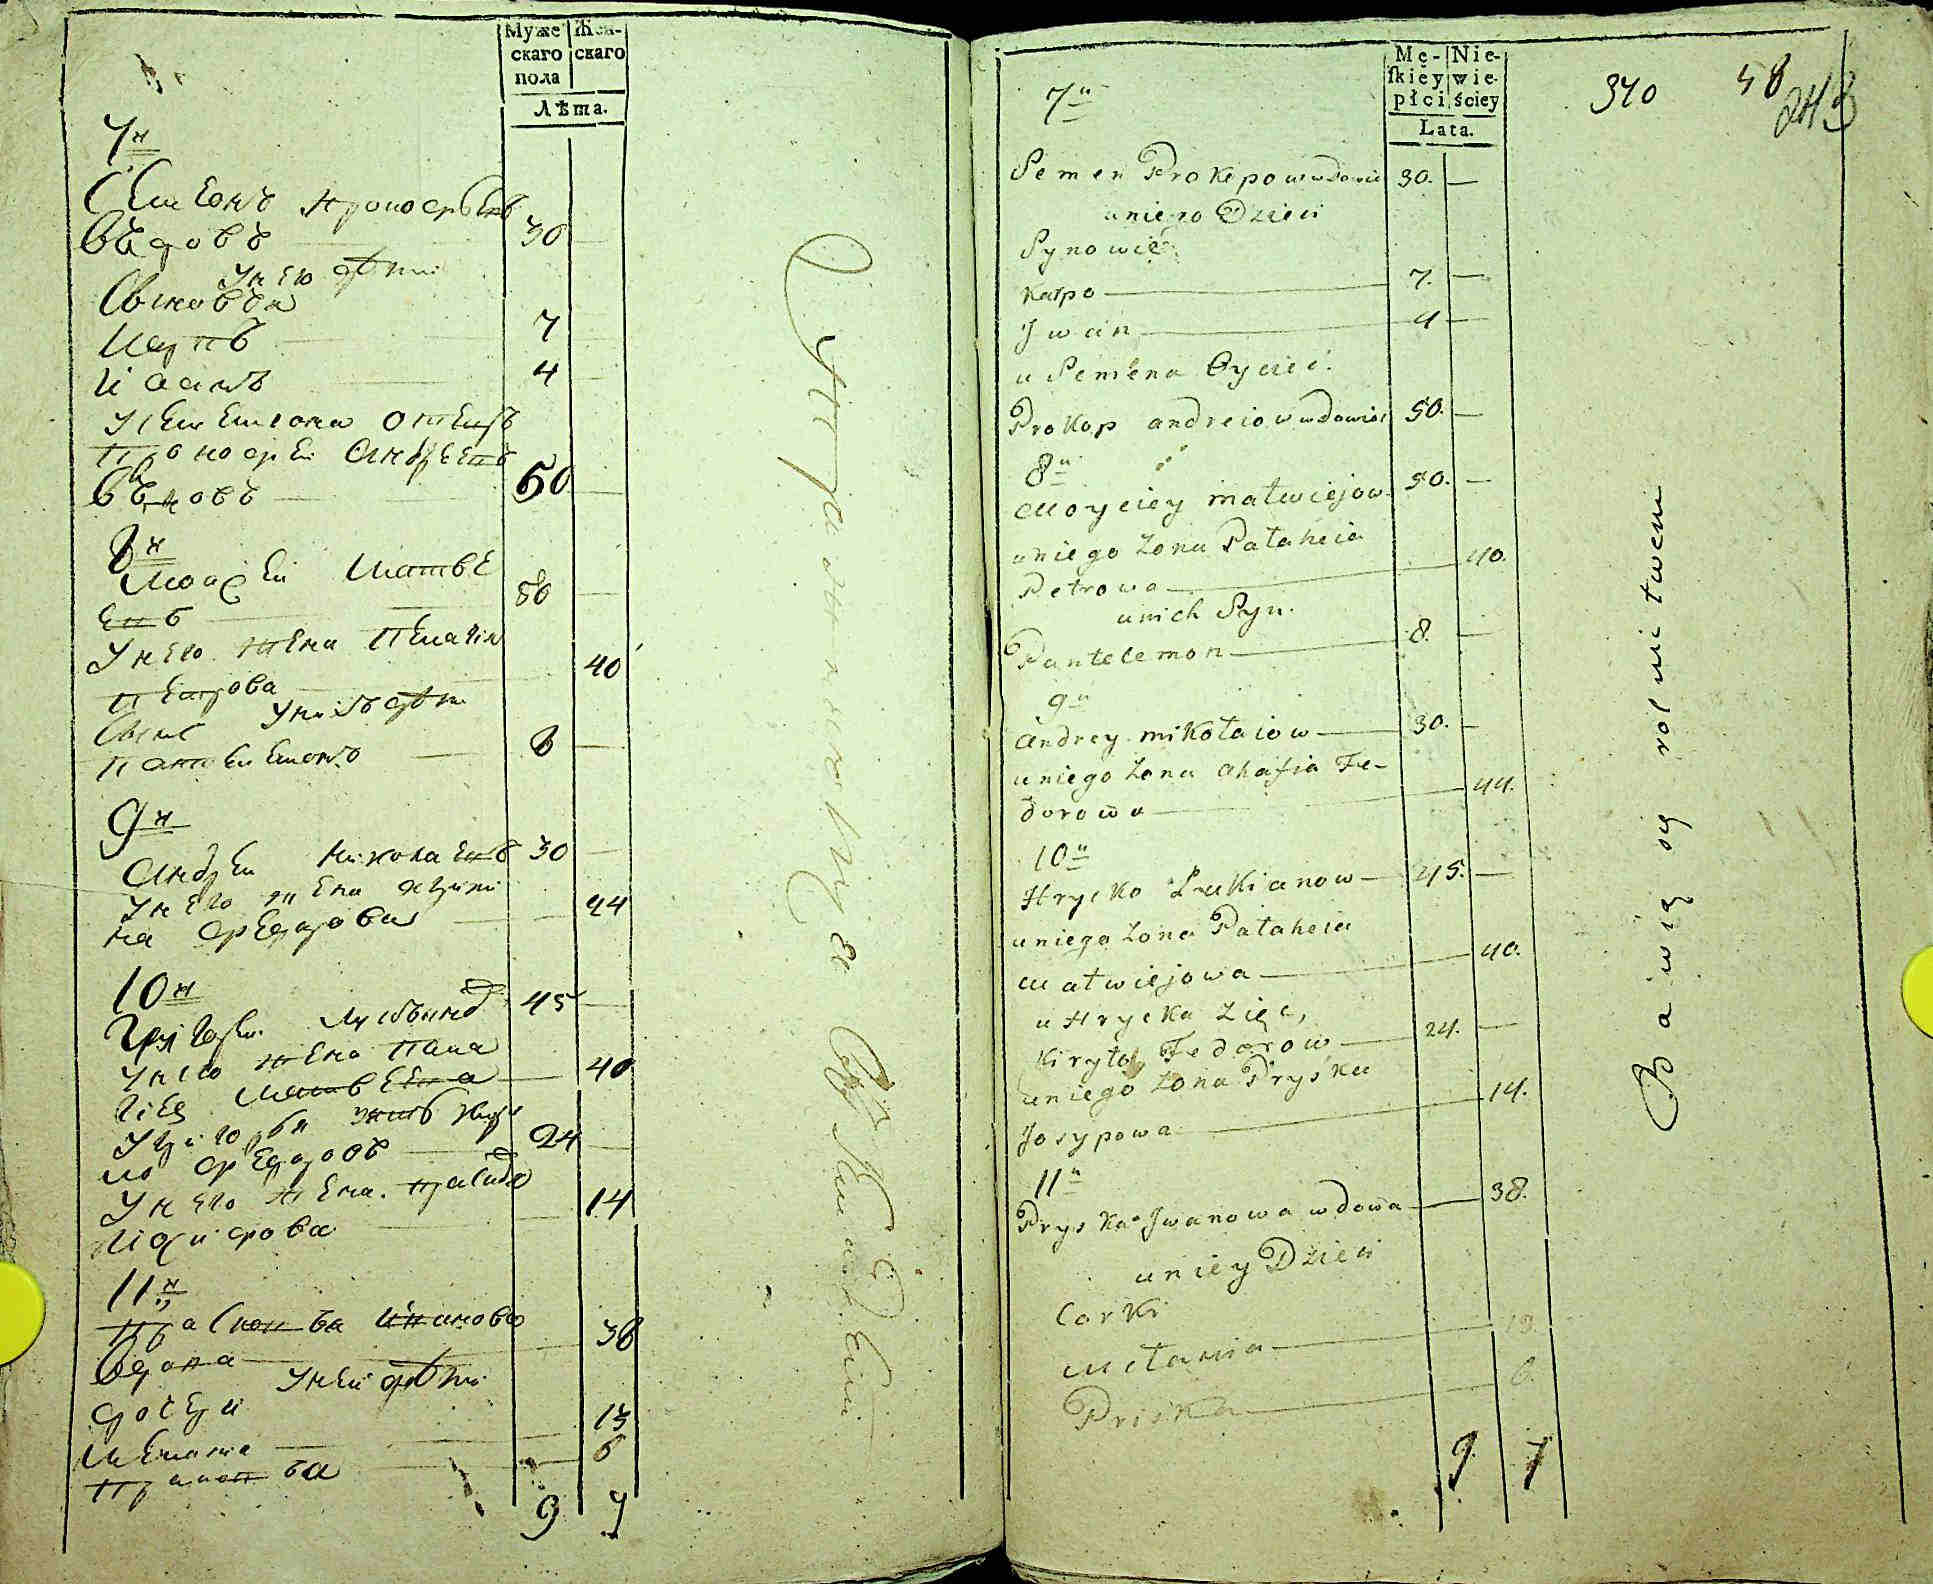 Муже
скаго
пола
Жен-
скаго
Лѣта.
7н
Семенъ Прокофьевъ
вдовъ 30
у него дѣти
Сыновья
Карпъ 7
Иванъ 4
у Семена отецъ
Прокофей Андреевъ
вдовъ 50
8н
Моисей Матве
евъ 50
у него жена Пелагея
Петрова 40
у нихъ дѣти
Сынъ
Пантелемонъ 8
9н
Андрей Николаевъ 30
у него жена Агафи
на Федорова 44
10н
Григорей Лукьяновъ 45
у него жена Пела
гея Матвеева 40
у Григорья зять Кири
ло Федоровъ 24
у него жена Праско
Іосифова 14
11н
Прасковья Иванова
вдова 38
у ней дѣти
дочери
Меланья 13
Прасковья 6
9 7
Mę-
ſkiéy
płci
Nie-
wie-
ściey
Lata.
340 58
7u
Semen Prokopow wdowiec 30.
u niego Dzieci
Synowie
Karpo 7.
Jwan 4
u Semena Oyciec
Prokop andreiow wdowiec 50.
8u
Moysiey matwiejow 50.
u niego żona Pałaheia
Petrowa 40.
u nich Syn.
Pantelemon 8.
9u
Andrey mikołaiow 30.
u niego żona Ahafia Fe-
dorowa 44.
10u
Hrycko Łukianow 45.
u niego żona Pałaheia
Matwiejowa 40.
u Hrycka Zięc,
Kiryło Fedorow 24.
u niego żona Pryśka
Josypowa 14.
11u
Pryska Jwanowa wdowa 38.
u niey Dzieci
Corki
Mełania 13.
Priska 6.
9. 7
Bawią się rolnictwem